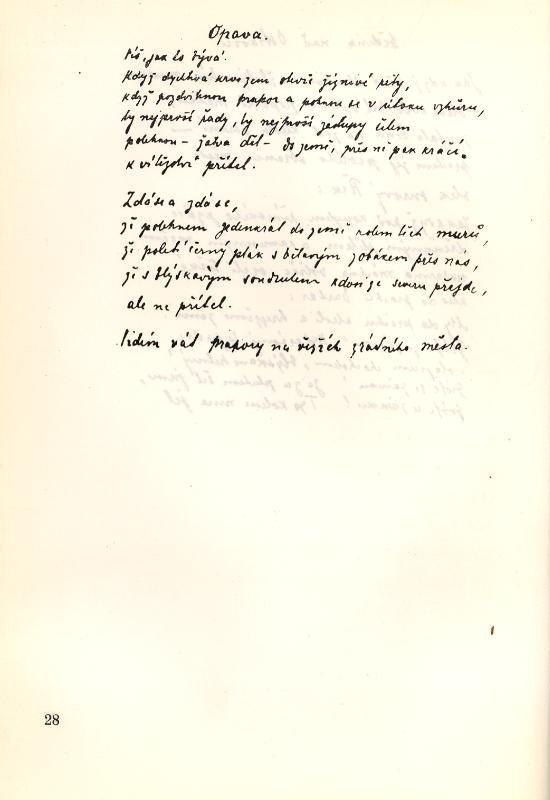 Opava.
Víš, jak to bývá.
Když dychtivá krve zem otevře žíznivé rety,
když pozdvihnou prapor a pohnou se v útoku vzhůru,
ty nejprvší řady, ty nejprvší zástupy čelem
polehnou – žatva děl – do země, přes ni pak kráčí
k vítězství přítel.
Zdá se a zdá se,
že polehnem jedenkrát do země kolem těch murů,
že poletí černý pták s bělavým zobákem přes nás,
že s blýskavým soudrukem kdosi ze severu přejde,
ale ne přítel.
Vidím vát prapory na věžích zrádného města.
28